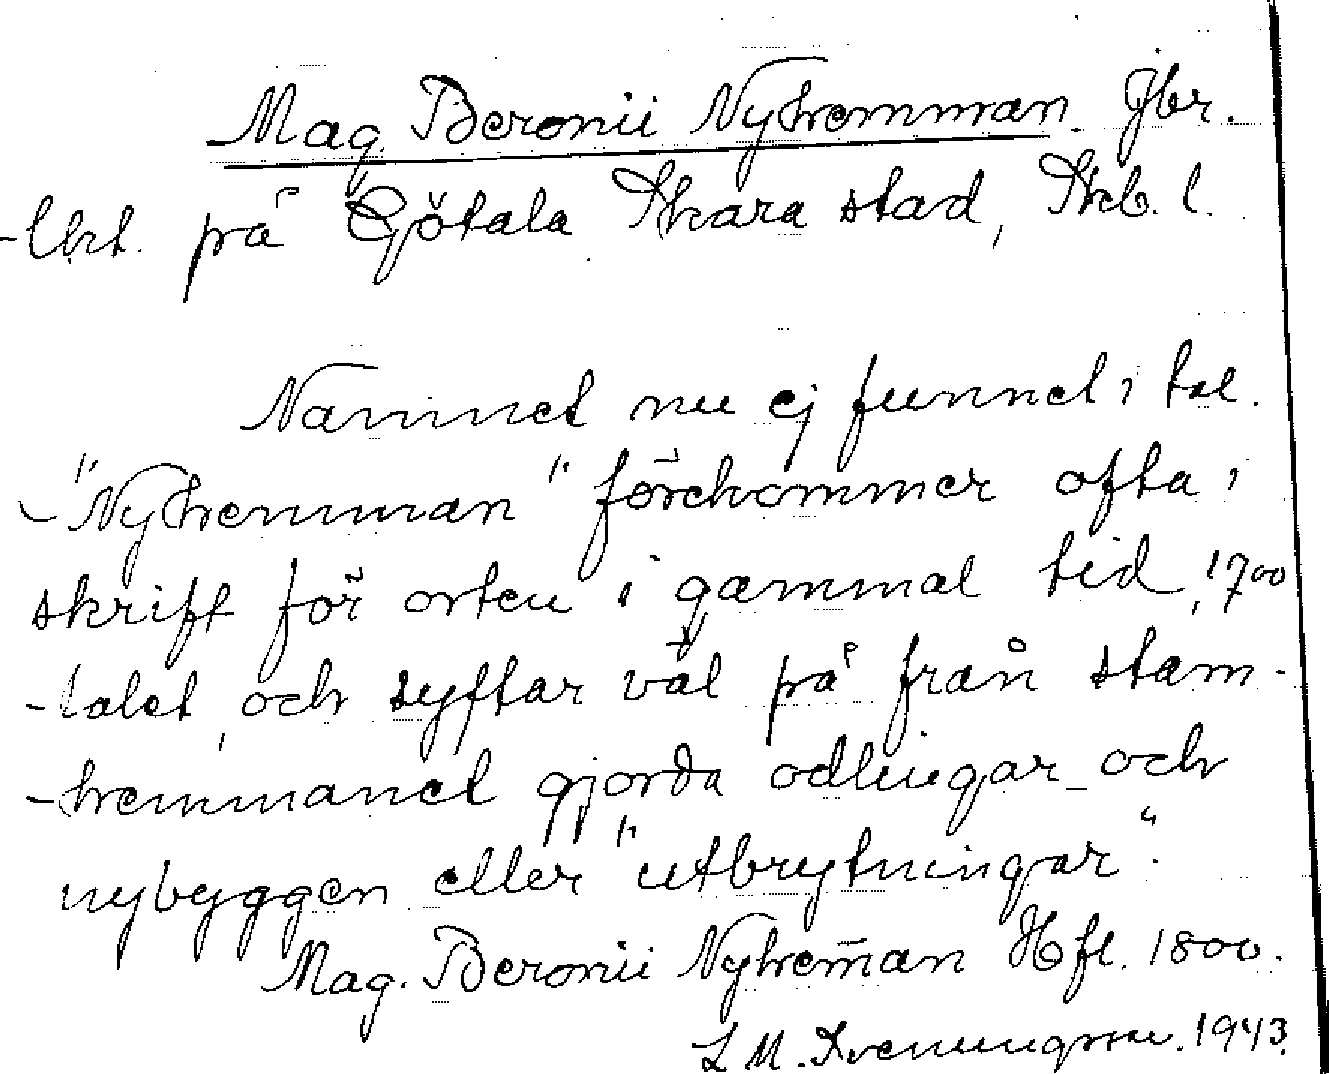 Mag. Beronii Nyhemman. Jbr.
-lht. på Götala Skara stad, Skb. l.
Namnet nu ej funnet i tal.
"Nyhemman" förekommer ofta i
skrift för orten i gammal tid, 1700
-talet, och syftar väl på från stam-
-hemmanet gjorda odlingar och
nybyggen eller "utbrytningar".
Mag. Beronii Nyhem̄an Hfl. 1800.
L M. Svenungsson. 1943.